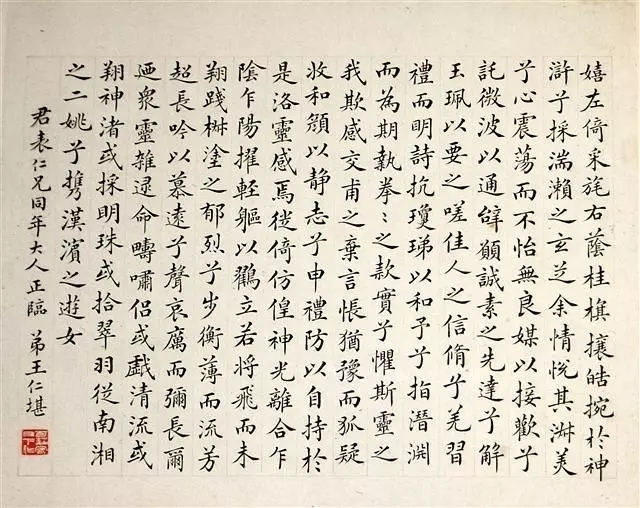 嬉左倚采旄右蔭桂旗攘皓捥於神
滸兮採湍瀨之玄芝余情悅其淑美
兮心震蕩而不怡無良媒以接歡兮
託微波以通辭願誠素之先達兮解
玉珮以要之嗟佳人之信脩兮羌習
禮而明詩抗瓊珶以和予兮指潛淵
而為期執拳〻之款實兮懼斯靈之
我欺感交甫之棄言悵猶豫而狐疑
收和顏以静志兮申禮防以自持於
是洛靈感焉徙倚仿偟神光離合乍
陰乍陽擢輕軀以鸖立若將飛而未
翔踐椒塗之郁烈兮步衡薄而流芳
超長吟以慕遠兮聲哀厲而彌長爾
迺衆靈雜遝命疇嘯侣或戲清流或
翔神渚或採明珠或拾翠羽從南湘
之二姚兮攜漢濱之遊女
君表仁兄同年大人正臨 弟王仁堪